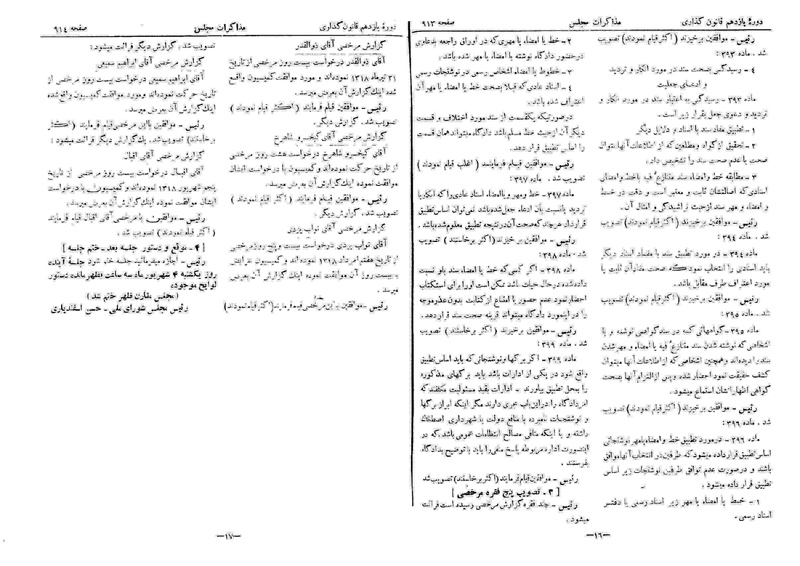 دورهٔ یازدهم قانون گذاری
مذاکرات مجلس
صفحه ۹۱۳
رئیس - موافقین برخیزند (اکثر قیام نمودند) تصویب
شد . ماده ۳۹۳:
۴ - رسیدگی بصحت سند در مورد انکار و تردید
و ادعای جعلیت
ماده ۳۹۳ - رسیدگی به اعتبار سند در مورد انکار و
تردید و دعوی جعل بقرار زیر است.
۱ - تطبیق مفاد سند با اسناد و دلایل دیگر
۲ - تحقیق از گواه و مطلعین که از اطلاعات آنها بتوان
صحت یا عدم صحت سند را تشخیص داد.
۳ - مطابقه خط و امضاء سند متنازع فیه با خط و امضای
اسنادی که اصالتشان ثابت و معتبر است و دقت در خط
و امضاء و مهر سند از حیث تراشیدگی و امثال آن.
رئیس - موافقین برخیزند (اکثر قیام نمودند) تصویب
شد . ماده ۳۹۴ :
ماده ۳۹۴ - در مورد تطبیق سند با مفاد اسناد دیگر
باید اسنادی را انتخاب نمود که صحت مفاد آن ثابت یا
مورد اعتراف طرف مقابل باشد.
رئیس - موافقین برخیزند (اکثر قیام نمودند) تصویب
شد . ماده ۳۹۵ :
ماده ۳۹۵ - گواههائی که در سند گواهی نوشته و یا
اشخاصی که نوشته شدن سند متنازع فیه یا امضاء و مهر شدن
سند را دیده اند و همچنین اشخاصی که از اطلاعات آنها میتوان
کشف حقیقت نمود احضار شده و پس از التزام آنها بصحت
گواهی اظهاراتشان استماع میشود.
رئیس - موافقین برخیزند (اکثر قیام نمودند) تصویب
شد . ماده ۳۹۶ :
ماده ۳۹۶ - در مورد تطبیق خط و امضاء یا مهر نوشتجاتی
اساس تطبیق قرار داده میشود که طرفین در انتخاب آنها موافق
باشند و در صورت عدم توافق طرفین نوشتجات زیر اساس
تطبیق قرار داده میشود .
۱ - خط یا امضاء یا مهر زیر اسناد رسمی یا دفتر
اسناد رسمی .
۲ - خط یا امضاء یا مهری که در اوراق راجعه بدعاوی
در حضور دادگاه نوشته یا امضاء یا مهر شده باشد.
۳ - خطوط یا امضاء اشخاص رسمی در نوشتجات رسمی
۴ - اسناد عادی که قبلا بصحت خط یا امضاء یا مهر آن
اعتراف شده باشد .
در صورتیکه یکقسمت از سند مورد اختلاف و قسمت
دیگر آن از حیث خط مسلم باشد دادگاه میتواند همان قسمت
را اساس تطبیق قرار دهد.
رئیس - موافقین قیام فرمایند (اغلب قیام نمودند)
تصویب شد . ماده ۳۹۷ :
ماده ۳۹۷ - خط و مهر و یا امضاء اسناد عادی را که انکار یا
تردید یا نسبت بآن ادعاء جعل شده باشد نمی توان اساس تطبیق
قرار داد هر چند که صحت آن در نتیجه تطبیق معلوم شده باشد.
رئیس - موافقین برخیزند (اکثر برخاستند) تصویب
شد . ماده ۳۹۸ :
ماده ۳۹۸ - اگر کسی که خط یا امضاء سند باو نسبت
داده شده در حال حیات باشد ممکن است او را برای استکتاب
احضار نمود عدم حضور یا امتناع از کتابت بدون عذر موجه
را در این مورد دادگاه میتواند قرینه صحت سند قرار دهد.
رئیس - موافقین برخیزند (اکثر برخاستند) تصویب
شد . ماده ۳۹۹ :
ماده ۳۹۹ - اگر برگها و نوشتجاتی که باید اساس تطبیق
واقع شود در یکی از ادارات باشد باید برگهای مذکوره
را بمحل تطبیق بیاورند - ادارات بقید مسئولیت مکلفند که
امر دادگاه را در این باب مجری دارند مگر اینکه ابراز برگها
و نوشتجات نامبرده با منافع دولت یا شهرداری اصطکاک
داشته و یا اینکه منافی مصالح انتظامات عمومی باشد که در
اینصورت اداره مربوطه پاسخ منفی را باین با توضیح بدادگاه
بفرستند .
رئیس - موافقین قیام فرمایند (اکثر برخاستند) تصویب شد
[۳ - تصویب پنج فقره مرخصی]
رئیس - چند فقره گزارش مرخصی رسیده است قرائت
میشود .
— ۱۶ —
دورهٔ یازدهم قانون گذاری
مذاکرات مجلس
صفحه ۹۱۴
گزارش مرخصی آقای ذوالقدر
آقای ذوالقدر درخواست بیست روز مرخصی از تاریخ
۲۱ تیرماه ۱۳۱۸ نموده اند و مورد موافقت کمیسیون واقع
اینک گزارش آن بعرض میرسد.
رئیس - موافقین قیام فرمایند (اکثر قیام نمودند)
گزارش مرخصی آقای کیخسرو شاهرخ
آقای کیخسرو شاهرخ درخواست هشت روز مرخصی
از تاریخ حرکت نموده اند و کمیسیون با درخواست ایشان
موافقت نموده اینک گزارش آن بعرض میرسد.
رئیس - موافقین قیام فرمایند (اکثر قیام نمودند)
تصویب شد. گزارش دیگر .
گزارش مرخصی آقای نواب یزدی
آقای نواب یزدی درخواست بیست و پنج روز مرخصی
از تاریخ هفتم امرداد ۱۳۱۸ نموده اند و کمیسیون عرایض
با بیست روز آن موافقت نموده اینک گزارش آن بعرض
میرسد .
رئیس - موافقین باین مرخصی قیام فرمایند (اکثر قیام نمودند)
تصویب شد. گزارش دیگر قرائت میشود:
گزارش مرخصی آقای ابراهیم سمیعی
آقای ابراهیم سمیعی درخواست بیست روز مرخصی از
تاریخ حرکت نموده اند و مورد موافقت کمیسیون واقع شده
اینک گزارش آن بعرض میرسد.
رئیس - موافقین با این مرخصی قیام فرمایند (اکثر
برخاستند) تصویب شد. یک گزارش دیگر قرائت میشود:
گزارش مرخصی آقای اقبال
آقای اقبال درخواست بیست روز مرخصی از تاریخ
پنجم شهریور ۱۳۱۸ نموده اند و کمیسیون با درخواست
ایشان موافقت نموده اینک گزارش آن بعرض میرسد.
رئیس - موافقین با مرخصی آقای اقبال قیام فرمایند
(اکثر قیام نمودند) تصویب شد.
[۴ - موقع و دستور جلسه بعد - ختم جلسه]
رئیس - اجازه میفرمائید جلسه ختم شود جلسه آینده
روز یکشنبه ۴ شهریور ماه سه ساعت بظهر مانده دستور
لوایح موجوده
(مجلس مقارن ظهر ختم شد)
رئیس مجلس شورای ملی - حسن اسفندیاری
— ۱۷ —